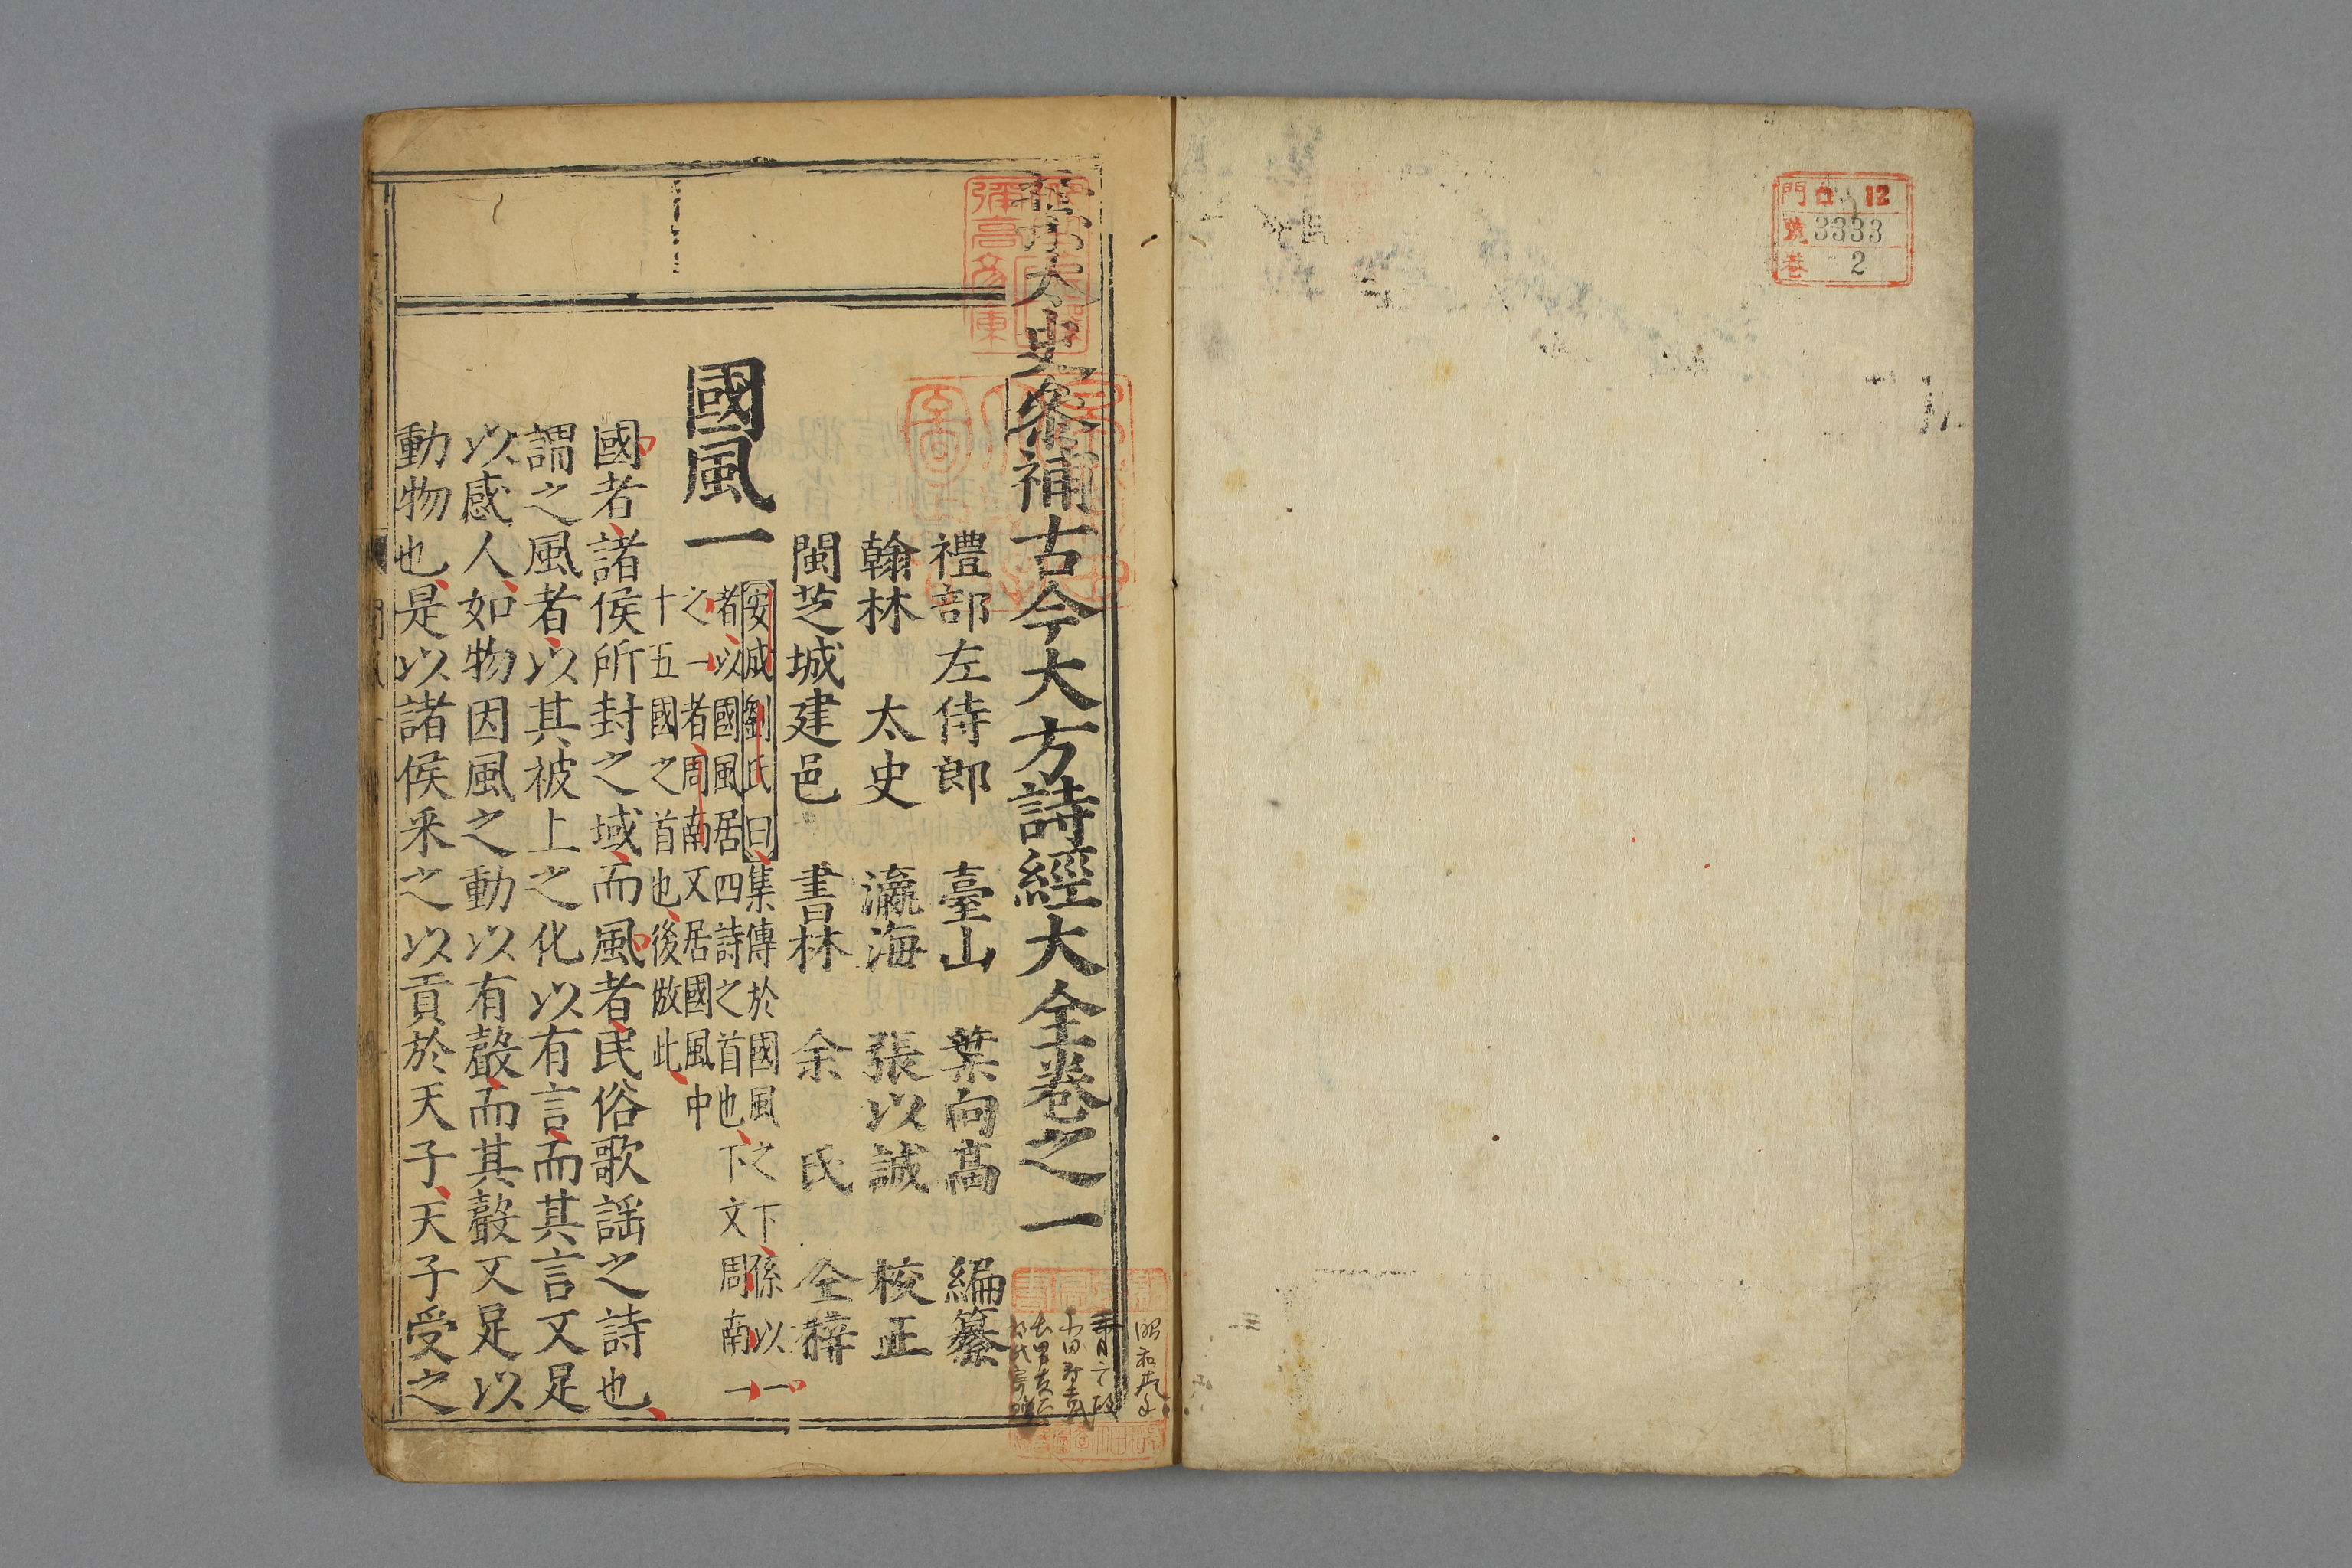 門 12
號 3333
卷 2
太史參補古今大方詩經大全卷之一
禮部左侍郎 臺山 葉向高 編纂
翰林 太史 瀛海 張以誠 校正
閩芝城建邑 書林 余氏 仝梓
國風一
安成劉氏曰集傳於國風之下係以一
者以國風居四詩之首也下文周南一
之一者周南又居國風中
十五國之首也後倣此
國者諸侯所封之域而風者民俗歌謡之詩也
謂之風者以其被上之化以有言而其言又足
以感人如物因風之動以有聲而其聲又足以
動物也是以諸侯采之以貢於天子天子受之